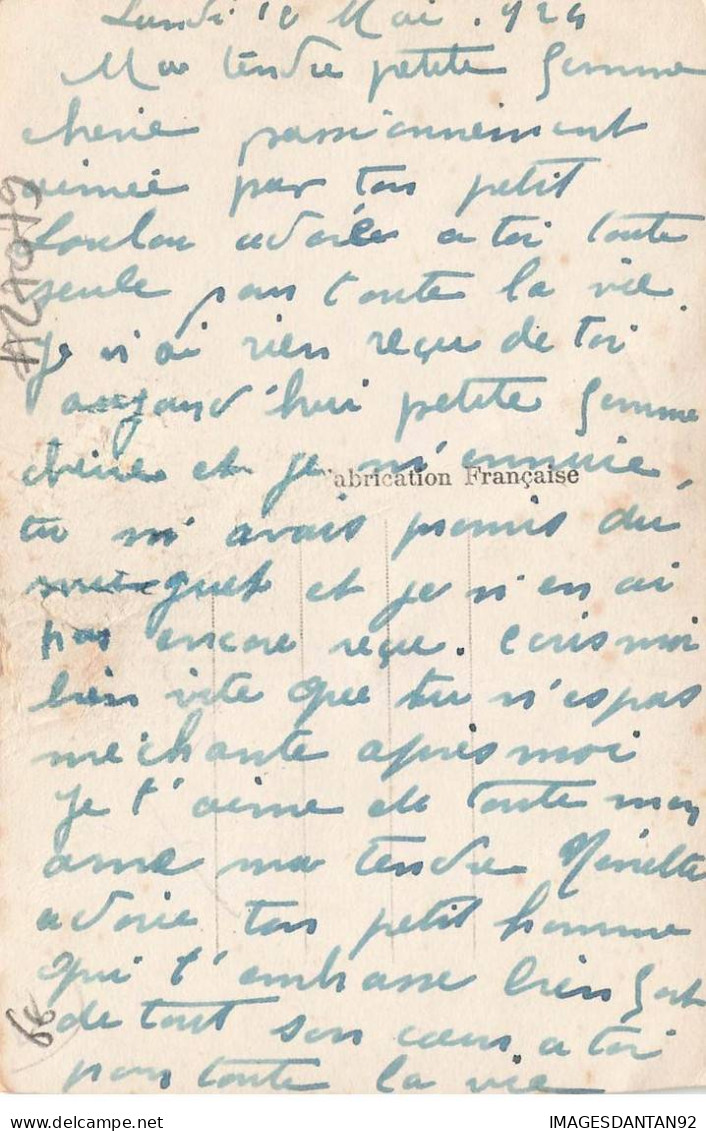 Lundi 12 Mai . 924
Ma tendre petite femme
cherie passionnement
aimée par ton petit
Loulou adorée a toi toute
seule pour toute la vie.
Je n'ai rien reçu de toi
aujourd'hui petite femme
cherie et je m'ennuie,
Fabrication Française
tu m'avais promis du
muguet et je n'en ai
pas encore reçu. ecris moi
bien vite que tu n'es pas
mechante après moi
Je t'aime de toute mon
ame ma tendre Ninette
adorée ton petit homme
qui t'embrasse bien fort
de tout son cœur a toi
pour toute la vie
66
IMAGESDANTAN92